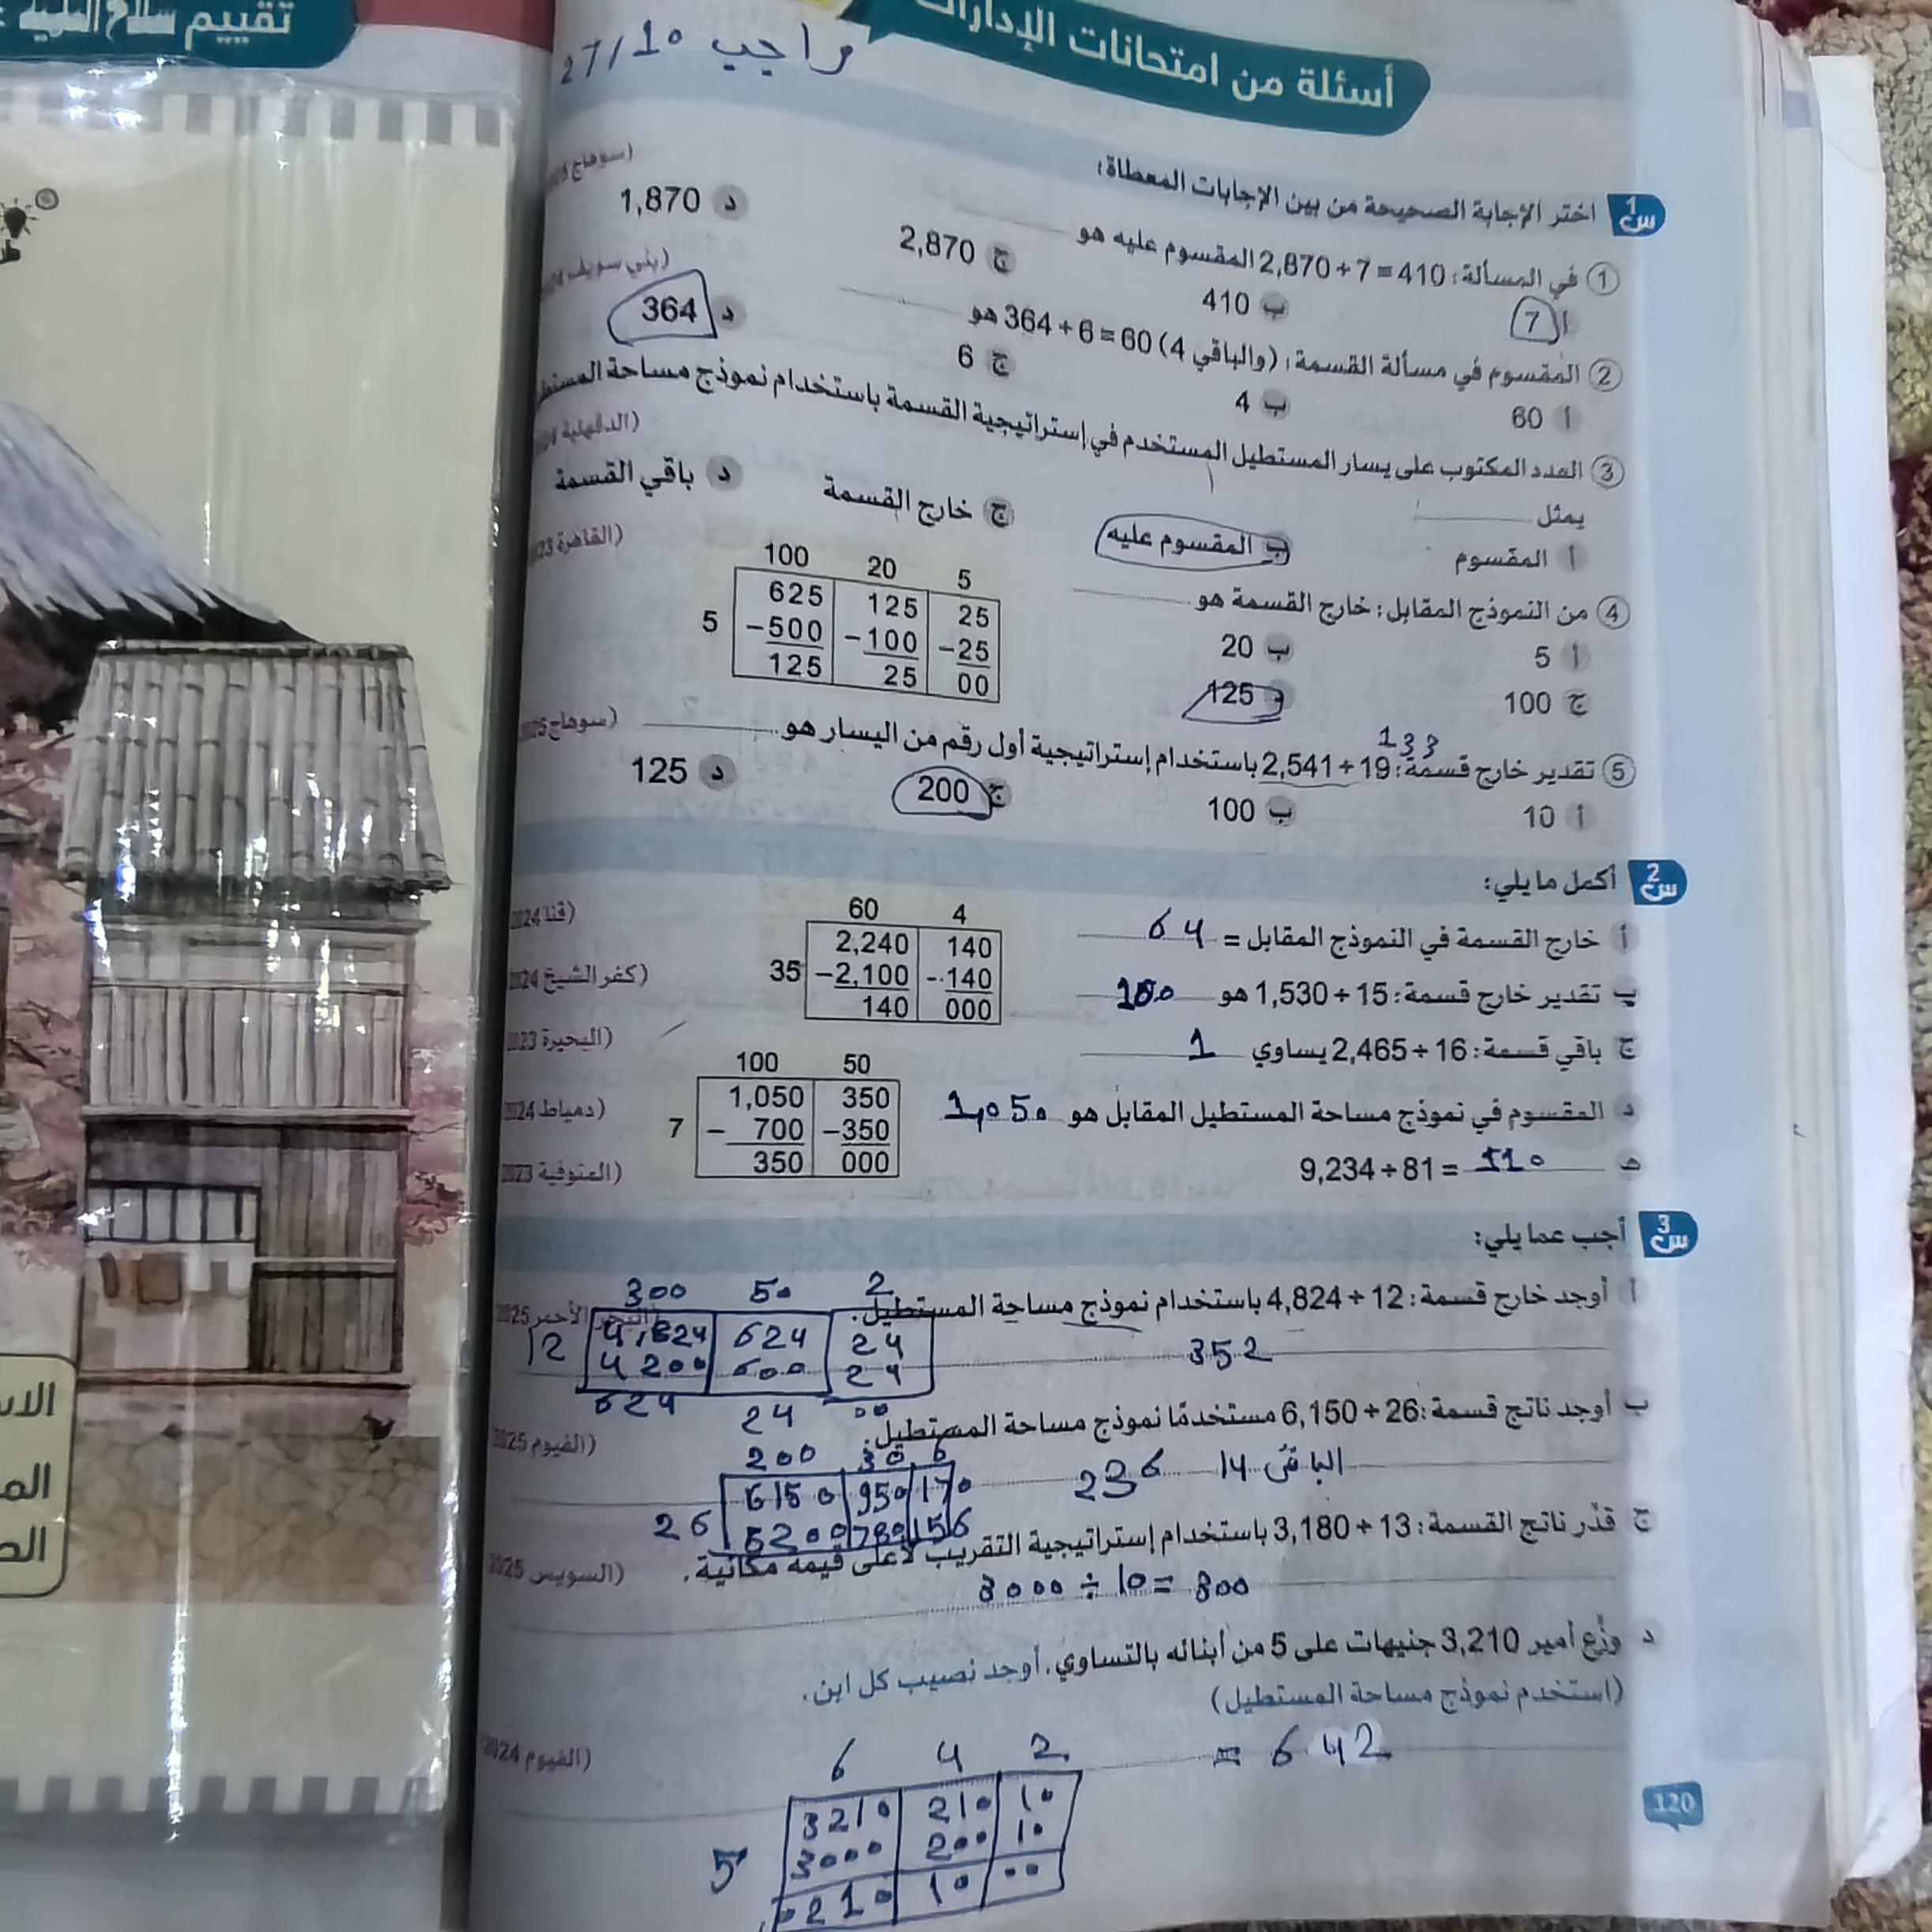 تقييم سلاح التلميذ
واجب 27/10
أسئلة من امتحانات الإدارات
س1 اختر الإجابة الصحيحة من بين الإجابات المعطاة:
① في المسألة: 410 = 7 ÷ 2,870 المقسوم عليه هو (سوهاج
أ 7 ب 410 ج 2,870 د 1,870
② المقسوم في مسألة القسمة: (والباقي 4) 60 = 6 ÷ 364 هو (بني سويف
أ 60 ب 4 ج 6 د 364
③ العدد المكتوب على يسار المستطيل المستخدم في إستراتيجية القسمة باستخدام نموذج مساحة
يمثل (الدقهلية
أ المقسوم ب المقسوم عليه ج خارج القسمة د باقي القسمة
④ من النموذج المقابل: خارج القسمة هو (القاهرة
أ 5 ب 20
ج 100 د 125
100 20 5
625 125 25
5 −500 −100 −25
125 25 00
133
⑤ تقدير خارج قسمة: 19 ÷ 2,541 باستخدام إستراتيجية أول رقم من اليسار هو (سوهاج 2025
أ 10 ب 100 ج 200 د 125
س2 أكمل ما يلي:
أ خارج القسمة في النموذج المقابل = 64 (قنا 2024
60 4
2,240 140
35 −2,100 −140
140 000
ب تقدير خارج قسمة: 15 ÷ 1,530 هو 100 (كفر الشيخ 2024
ج باقي قسمة: 16 ÷ 2,465 يساوي 1 (البحيرة 2023
د المقسوم في نموذج مساحة المستطيل المقابل هو 1,050 (دمياط 2024
100 50
1,050 350
7 − 700 −350
350 000
هـ 9,234 ÷ 81 = 110 (المنوفية 2023
س3 أجب عما يلي:
أ أوجد خارج قسمة: 12 ÷ 4,824 باستخدام نموذج مساحة المستطيل. (البحر الأحمر 2025
352
300 50 2
12 4,824 624 24
4200 600 24
624 24 00
ب أوجد ناتج قسمة: 26 ÷ 6,150 مستخدمًا نموذج مساحة المستطيل. (الفيوم 2025
236 الباقى 14
200 30 6
26 6150 950 170
5200 780 156
ج قدّر ناتج القسمة: 13 ÷ 3,180 باستخدام إستراتيجية التقريب لأعلى قيمة مكانية. (السويس 2025
3000 ÷ 10 = 300
د وزّع أمير 3,210 جنيهات على 5 من أبنائه بالتساوي. أوجد نصيب كل ابن.
(استخدم نموذج مساحة المستطيل) (الفيوم 2024
= 642
6 4 2
3210 210 10
5 3000 200 10
0210 10 00
120